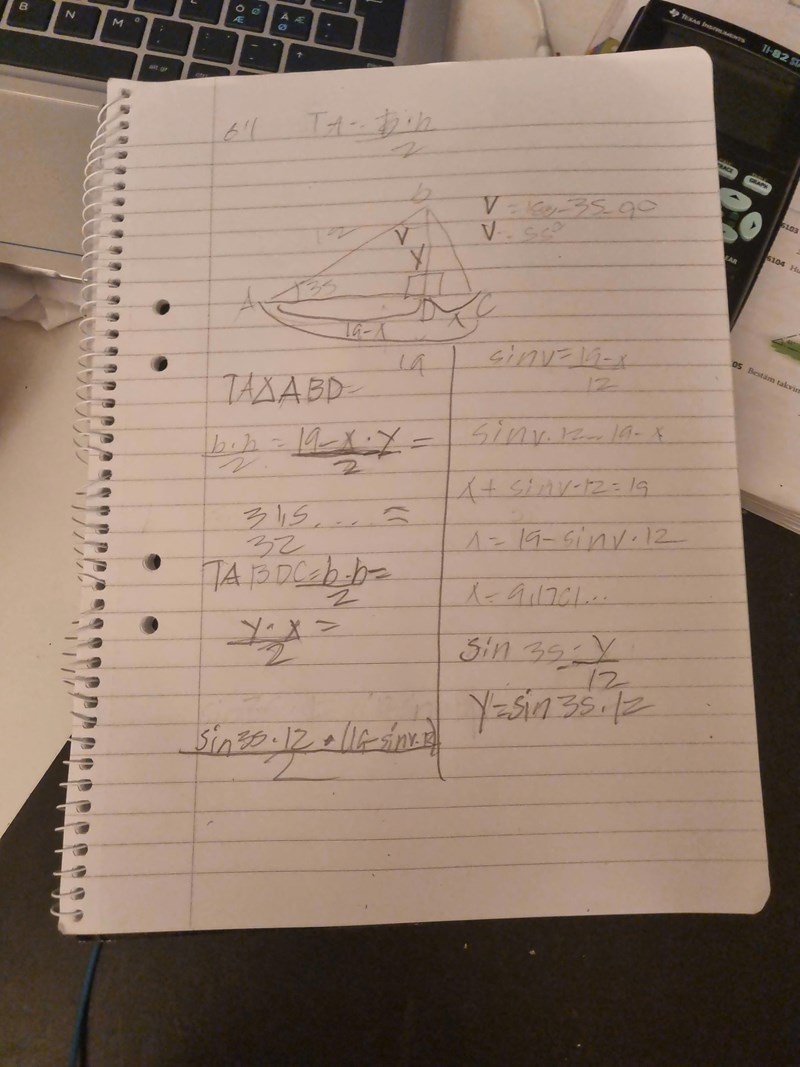 TEXAS INSTRUMENTS
TI-82 STA
B N M
GRAPH
TA = b·h
2
B
V = 180-35-90
V = 55°
12
V
Y
A
35
D
C
19-x
x
19
TA△ABD=
b·h = 19-x·y =
2 2
31,5.... =
32
TABDC=b·h=
2
y·x =
2
sin35·12 · (19-sinv·12)
2
sinv=19-x
12
sinv·12=19-x
x+sinv·12=19
x=19-sinv·12
x=9,1701...
sin 35=y
12
y=sin35·12
6103
6104
05 Bestäm